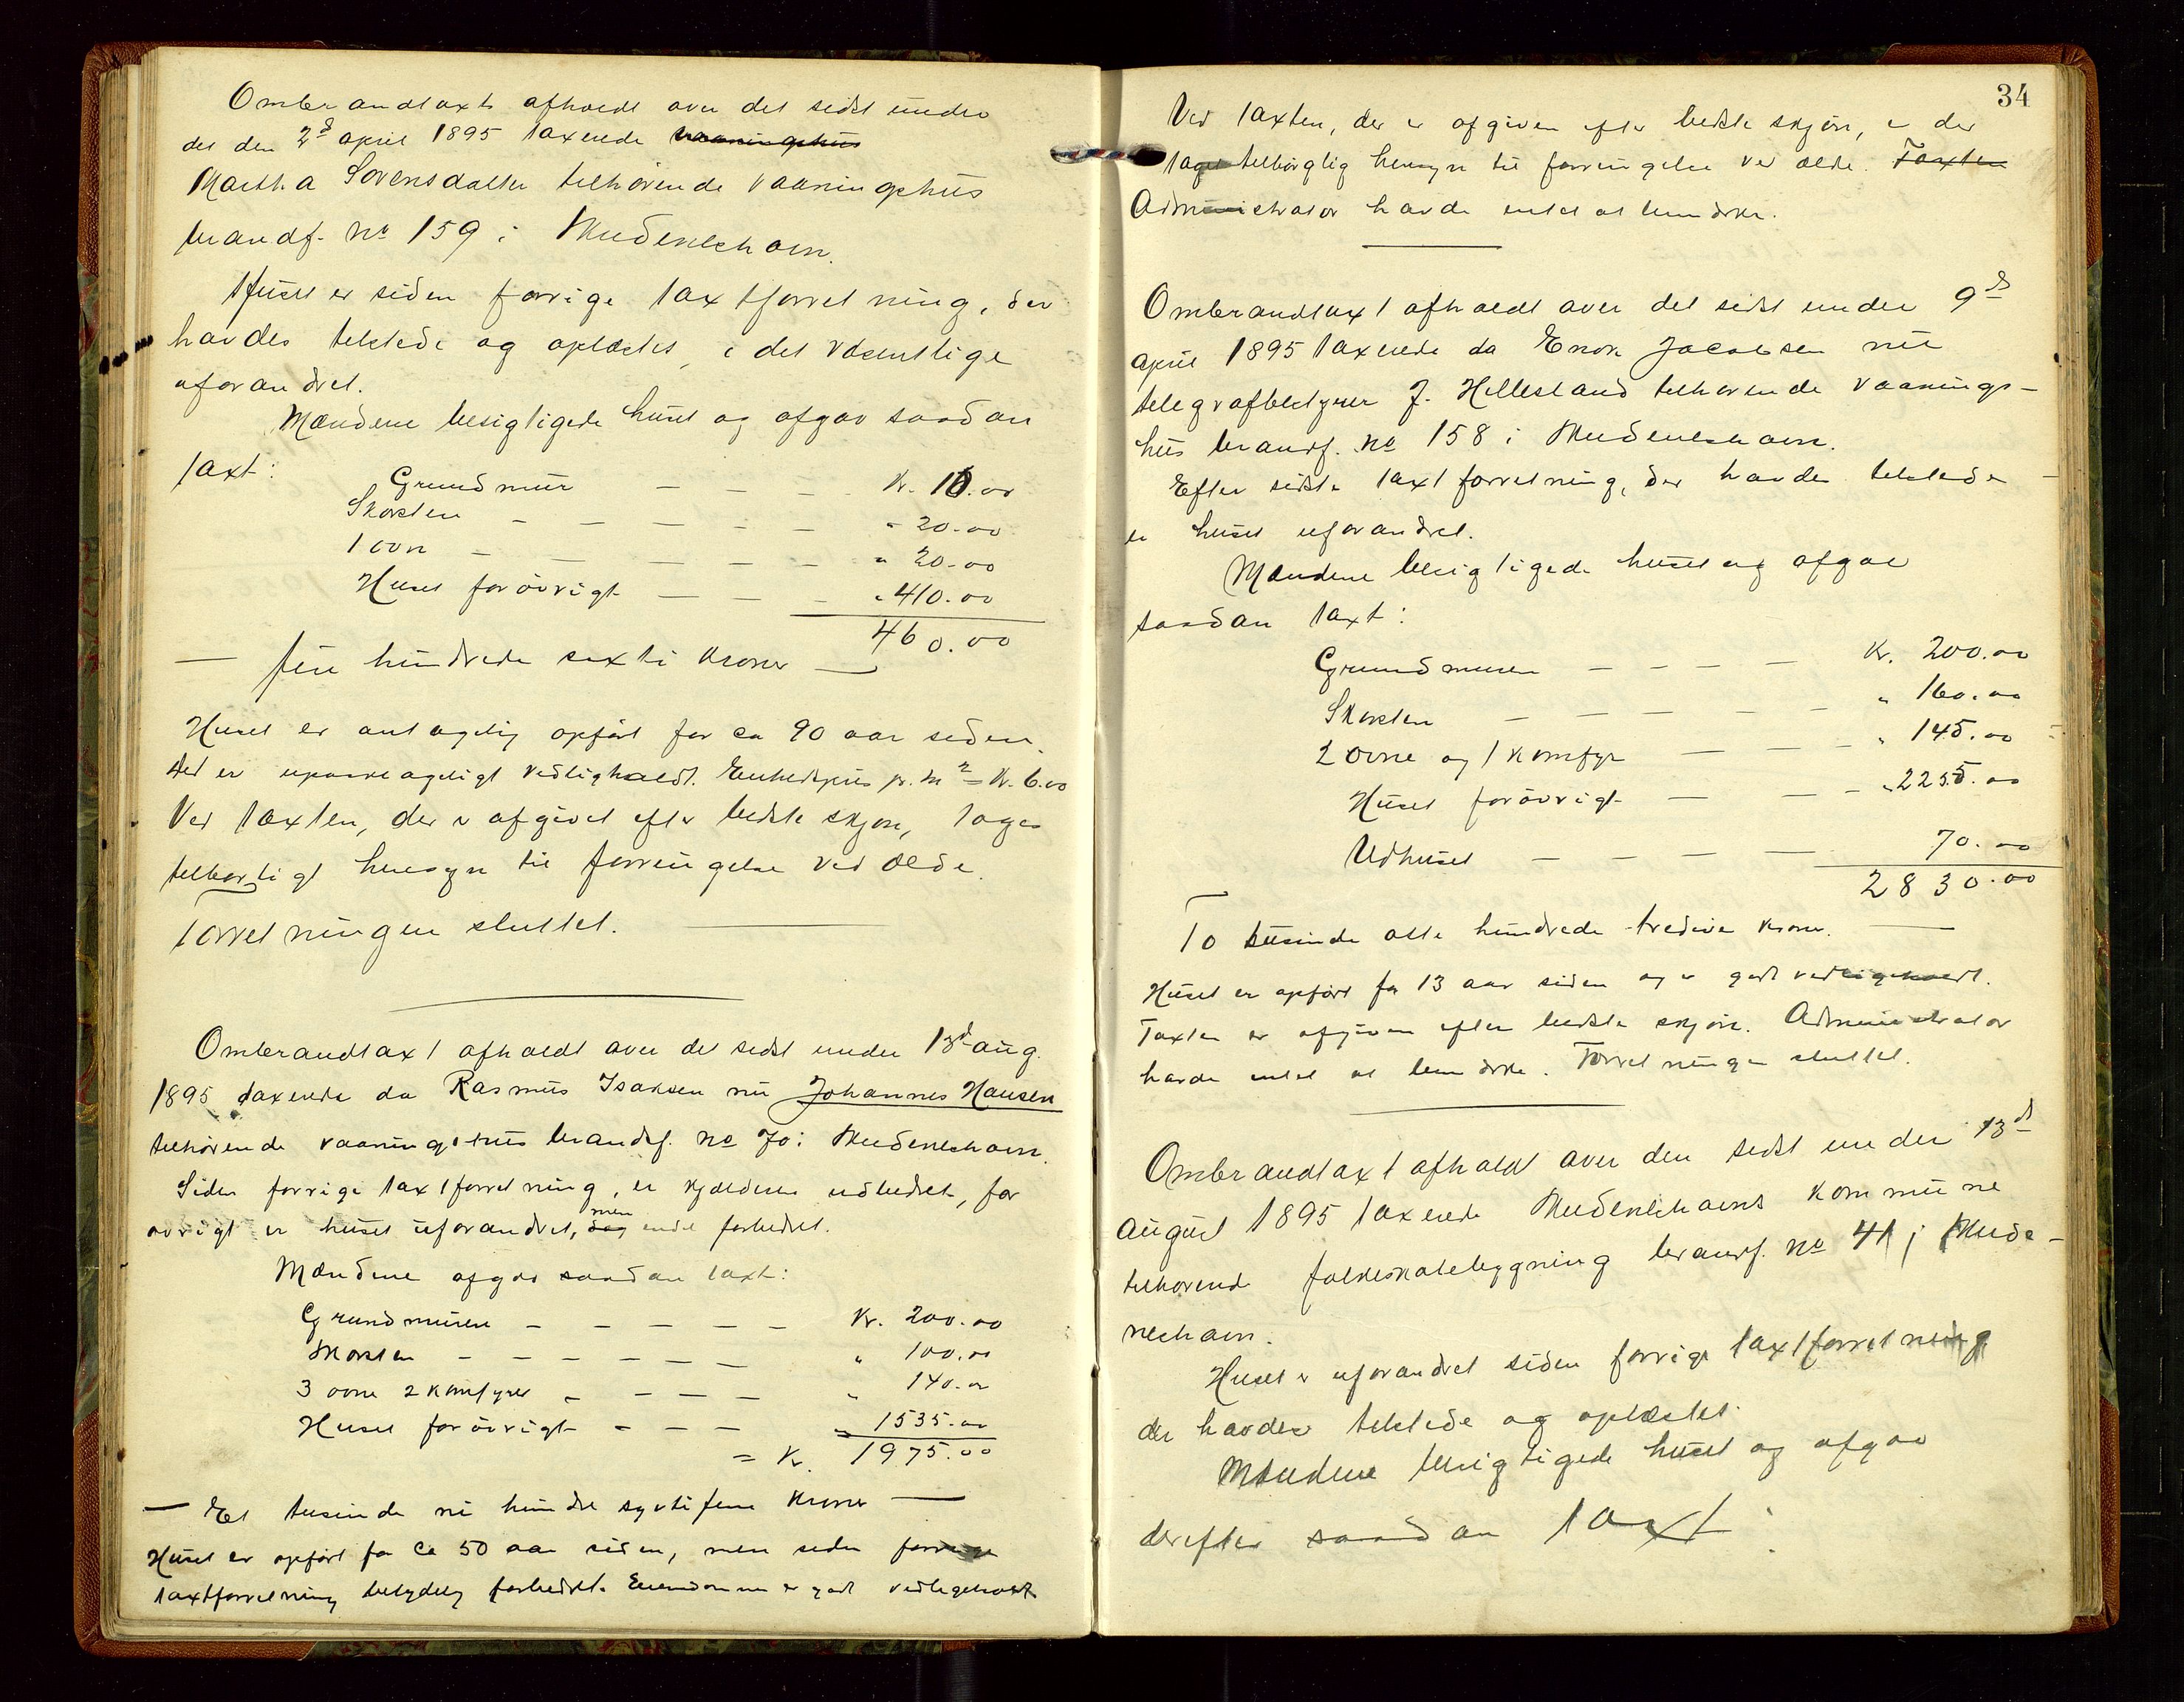 Ombrandtaxt afholdt over det sidst under
det den 2d april 1895 taxerede vaaningshus
Martha Sørensdatter tilhørende vaaningshus
brandf. No 159 i Skudeneshavn.
Huset er siden forrige taxtforretning, der
havdes tilstede og oplæstes, i det væsentlige
uforandret.
Mændene besigtigede huset og afgav saadan
taxt:
Grundmur — — — Kr. 10.00
Skorsten — — — — — " 20.00
1 ovn — — — — — " 20.00
Huset forövrigt — — — " 410.00
460.00
— fire hundrede sexti Kroner —
Huset er antagelig opført for ca 90 aar siden.
Det er upaaklageligt vedligholdt. Enhedspris pr. m2 = Kr. 6.00
Ved taxten, der er afgivet efter bedste skjøn, toges
tilbørligt hensyn til forringelse ved ælde.
Forretningen sluttet.
Ombrandtaxt afholdt over det sidst under 13d aug.
1895 taxerede da Rasmus Isaksen nu Johannes Hansen
tilhørende vaaningshus brandf. No 70 i Skudeneshavn.
Siden forrige taxtforretning, er kjælderen udbedret, for
øvrigt er huset uforandret, dog men endel forbedret.
Mændene afgav saadan taxt:
Grundmuren — — — — — Kr. 200.00
Skorsten — — — — — — " 100.00
3 ovne 2 komfyrer — — — — " 140.00
Huset forövrigt — — — " 1535.00
= Kr. 1975.00
— Et tusinde ni hundre syvtifem Kroner —
Huset er opført for ca 50 aar siden, men siden forrige
taxtforretning betydelig forbedret. Eiendommen er godt vedligeholdt
34
Ved taxten, der er afgiven efter bedste skjøn, er der
taget tilbørglig hensyn til forringelse ved ælde. Taxten
Administrator havde intet at bemærke.
Ombrandtaxt afholdt over det sidst under 9de
april 1895 taxerede da Enok Jacobsen nu
telegrafbestyrer J. Hillesland tilhørende vaanings-
hus brandf. No 158 i Skudeneshavn.
Efter sidste taxtforretning, der havdes tilstede
er huset uforandret.
Mændene besigtigede huset og afgav
saadan taxt:
Grundmuren — — — — Kr. 200.00
Skorsten — — — — — " 160.00
2 ovne og 1 komfyr — — — " 145.00
Huset forövrigt — — — " 2255.00
Udhuset — — — — 70.00
2830.00
To tusinde otte hundrede tredive kroner. —
Huset er opført for 13 aar siden og er godt vedligeholdt.
Taxten er afgiven efter bedste skjøn. Administrator
havde intet at bemærke. Forretningen sluttet.
Ombrandtaxt afholdt over den sidst under 13d
august 1895 taxerede Skudeneshavns kommune
tilhørende folkeskolebygning brandf. No 41 i Skude-
neshavn.
Huset er uforandret siden forrige taxtforretning
der havdes tilstede og oplæstet.
Mændene besigtigede huset og afgav
derefter saadan taxt: